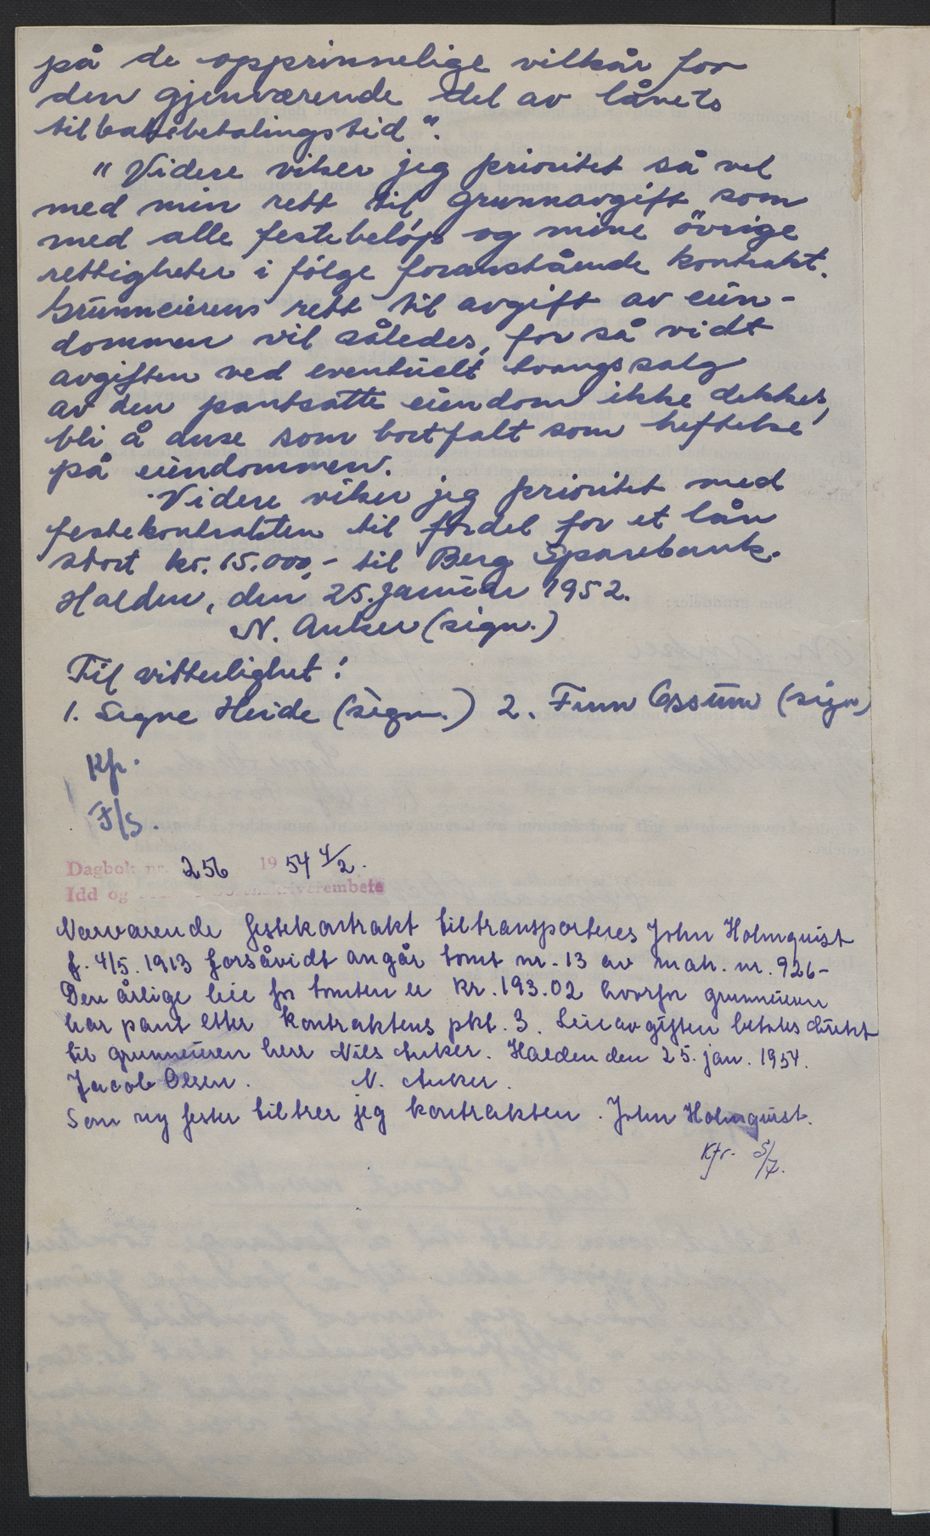 på de opprinnelige vilkår for
den gjenværende del av lånets
tilbakebetalingstid".
"Videre viker jeg prioritet så vel
med min rett til grunnavgift som
med alle festebeløp og mine övrige
rettigheter i følge foranstående kontrakt.
Grunneierens rett til avgift av eien-
dommen vil således, for så vidt
avgiften ved eventuelt tvangssalg
av den pantsatte eiendom ikke dekkes,
bli å anse som bortfalt som heftelse
på eiendommen.
Videre viker jeg prioritet med
festekontrakten til fordel for et lån
stort kr. 15.000,- til Berg Sparebank.
Halden, den 25. januar 1952.
N. Anker (sign.)
Til vitterlighet:
1. Signe Heide (sign.) 2. Finn Ossum (sign)
Kp.
F/S.
Dagbok nr. 256 1954 4/2.
Idd og skriverembete
Nærværende festekontrakt tiltransporteres John Holmquist
f. 4/5. 1913 forsåvidt angår tomt nr. 13 av matr. nr. 926-
Den årlige leie for tomten er Kr. 193.02 hvorfor grunneieren
har pant etter kontraktens pkt. 3. Leieavgiften betales direkt
til grunneieren herr Nils Anker. Halden den 25. jan. 1954.
Jacob Olsen. N. Anker.
Som ny fester tiltrer jeg kontrakten. John Holmquist.
Kfr. 5/7.